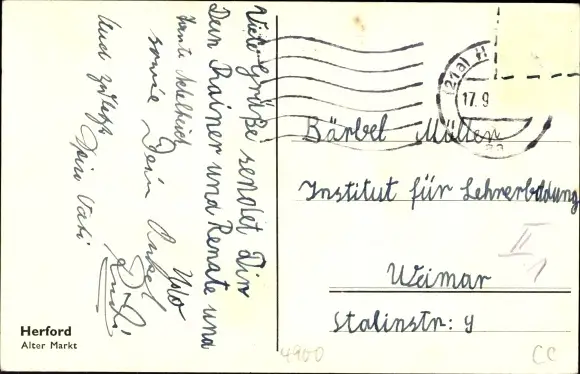 Viele Grüße sendet Dir
Dein Rainer und Renate und
Udo
Tante Adelheid
sowie Dein Onkel
Rudi
Und zuletzt
Dein Vati
(21a) H
17.9
Bärbel Müller
Institut für Lehrerbildung
II
1
Weimar
Stalinstr: 4
Herford
Alter Markt
4900
CC